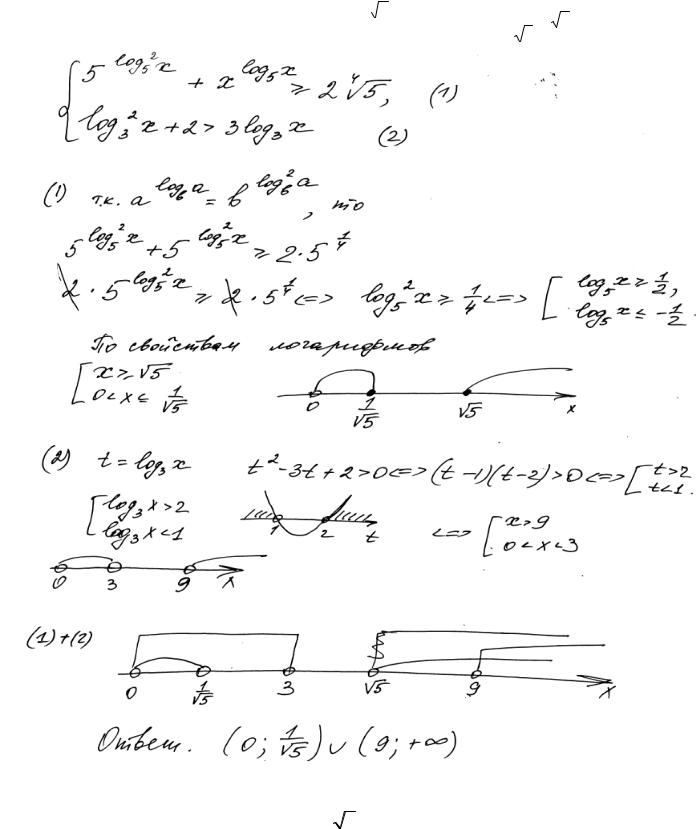 √
√ √
{ 5^{log_5^2 x} + x^{log_5 x} ⩾ 2 ∜5, (1)
log_3^2 x + 2 > 3 log_3 x (2)
(1) т.к. a^{log_b a} = b^{log_b^2 a}, то
5^{log_5^2 x} + 5^{log_5^2 x} ⩾ 2 · 5^{1/4}
2 · 5^{log_5^2 x} ⩾ 2 · 5^{1/4} <=> log_5^2 x ⩾ 1/4 <=> [ log_5 x ⩾ 1/2,
log_5 x ⩽ -1/2.
По свойствам логарифмов
[ x ⩾ √5
0 < x ⩽ 1/√5
0 1/√5 √5 x
(2) t = log_3 x t^2 - 3t + 2 > 0 <=> (t - 1)(t - 2) > 0 <=> [ t > 2
t < 1.
[ log_3 x > 2
log_3 x < 1
1 2 t
<=> [ x > 9
0 < x < 3
0 3 9 x
(1) + (2)
0 1/√5 3 √5 9 x
Ответ. (0; 1/√5) ∪ (9; +∞)
√